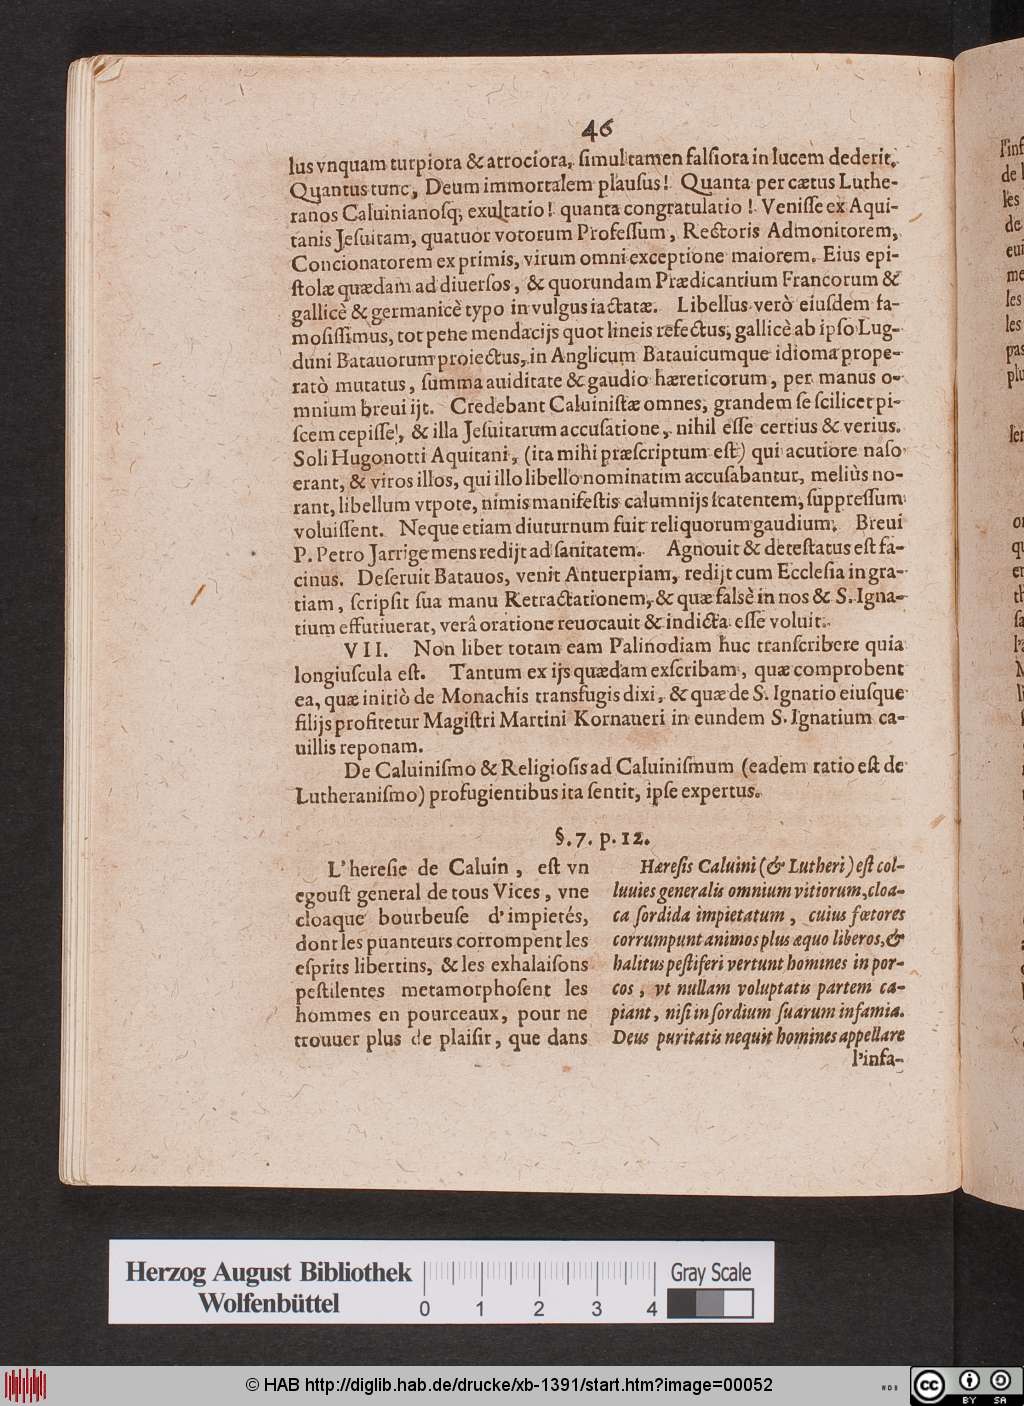 46
lus vnquam turpiora & atrociora, simul tamen falsiora in lucem dederit.
Quantus tunc, Deum immortalem plausus! Quanta per cætus Luthe-
ranos Caluinianosq; exultatio! quanta congratulatio! Venisse ex Aqui-
tanis Jesuitam, quatuor votorum Professum, Rectoris Admonitorem,
Concionatorem ex primis, virum omni exceptione maiorem. Eius epi-
stolæ quædam ad diuersos, & quorundam Prædicantium Francorum &
gallicè & germanicè typo in vulgus iactatæ. Libellus verò eiusdem fa-
mosissimus, tot pene mendacijs quot lineis refectus, gallicè ab ipso Lug-
duni Batauorum proiectus, in Anglicum Batauicumque idioma prope-
ratò mutatus, summa auiditate & gaudio hæreticorum, per manus o-
mnium breui ijt. Credebant Caluinistæ omnes, grandem se scilicet pi-
scem cepisse, & illa Jesuitarum accusatione, nihil esse certius & verius.
Soli Hugonotti Aquitani, (ita mihi præscriptum est) qui acutiore naso
erant, & viros illos, qui illo libello nominatim accusabantur, meliùs no-
rant, libellum vtpote, nimis manifestis calumnijs scatentem, suppressum
voluissent. Neque etiam diuturnum fuit reliquorum gaudium. Breui
P. Petro Jarrige mens redijt ad sanitatem. Agnouit & detestatus est fa-
cinus. Deseruit Batauos, venit Antuerpiam, redijt cum Ecclesia in gra-
tiam, scripsit sua manu Retractationem, & quæ falsè in nos & S. Igna-
tium effutiuerat, verâ oratione reuocauit & indicta esse voluit.
VII. Non libet totam eam Palinodiam huc transcribere quia
longiuscula est. Tantum ex ijs quædam exscribam, quæ comprobent
ea, quæ initiò de Monachis transfugis dixi, & quæ de S. Ignatio eiusque
filijs profitetur Magistri Martini Kornaueri in eundem S. Ignatium ca-
uillis reponam.
De Caluinismo & Religiosis ad Caluinismum (eadem ratio est de
Lutheranismo) profugientibus ita sentit, ipse expertus.
§. 7. p. 12.
L'heresie de Caluin, est vn
egoust general de tous Vices, vne
cloaque bourbeuse d'impietés,
dont les puanteurs corrompent les
esprits libertins, & les exhalaisons
pestilentes metamorphosent les
hommes en pourceaux, pour ne
trouuer plus de plaisir, que dans
Hæresis Caluini (& Lutheri) est col-
luuies generalis omnium vitiorum, cloa-
ca sordida impietatum, cuius fœtores
corrumpunt animos plus æquo liberos, &
halitus pestiferi vertunt homines in por-
cos, vt nullam voluptatis partem ca-
piant, nisi in sordium suarum infamia.
Deus puritatis nequit homines appellare
l'infa-
l'inf
de l
les
de
eui
me
les
les
pas
plu
Herzog August Bibliothek
Wolfenbüttel
0 1 2 3 4
Gray Scale
© HAB http://diglib.hab.de/drucke/xb-1391/start.htm?image=00052
cc BY SA